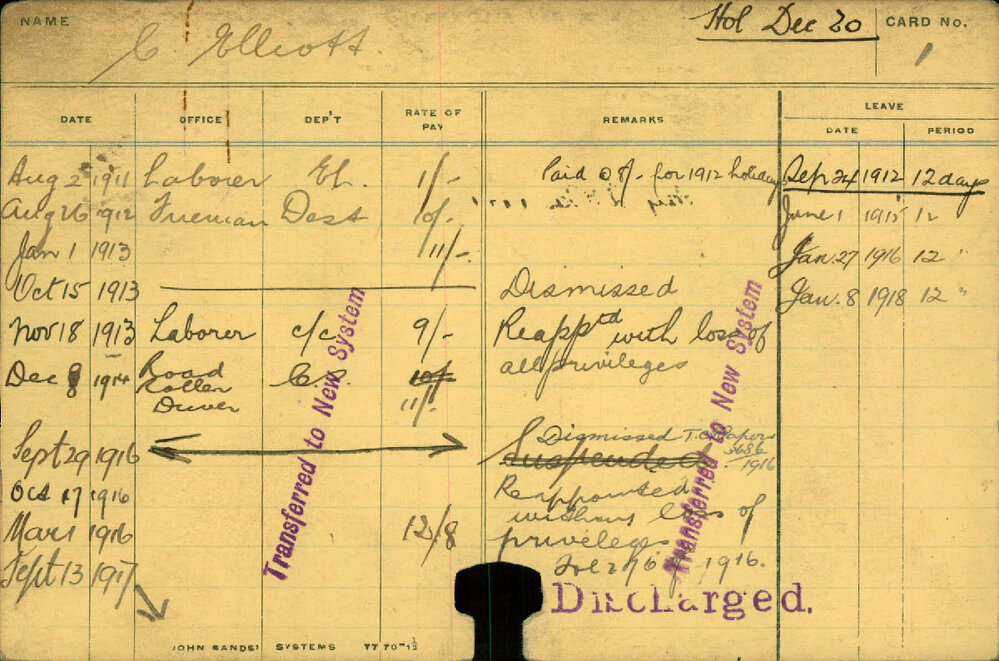 NAME C. Elliott Hol Dec 20 CARD No. 1
LEAVE
DATE OFFICE DEP'T RATE OF PAY REMARKS DATE PERIOD
Aug 2 1911 Laborer El. 1/- Paid for 1912 holiday Sep 24 1912 12 days
Aug 26 1912 Fireman Dest 10/- June 1 1915 12 "
Jan 1 1913 11/- Jan. 27 1916 12 "
Oct 15 1913 Dismissed Jan. 8 1918 12 "
Nov 18 1913 Laborer c/c 9/- Reapptd with loss of
all privileges
Dec 8 1914 Road C.S. 10/-
Roller
Driver 11/-
Dismissed T.C. Papers
3686
1916
Sept 29 1916 Suspended
Oct 17 1916 Reappointed
without loss of
Mar 1 1916 12/8 privileges
Sept 13 1917 1916.
Transferred to New System
Transferred to New System
Discharged.
JOHN SANDS' SYSTEMS 7770-13